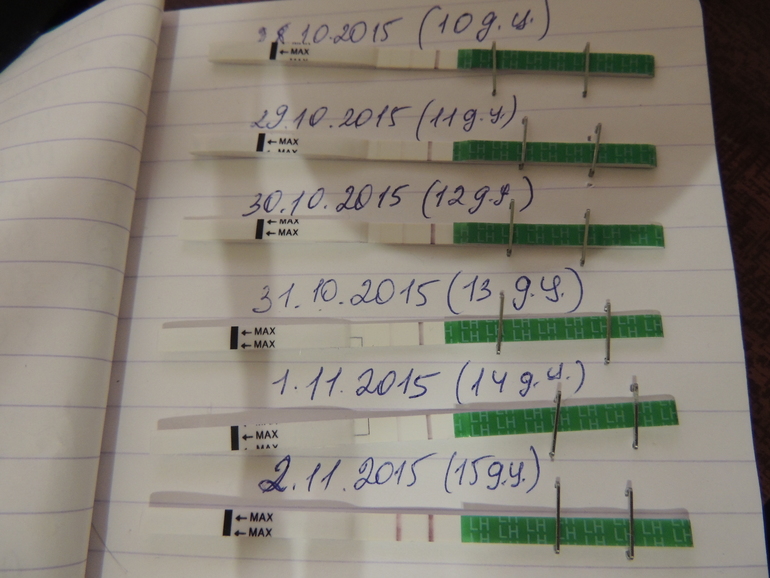 28.10.2015 (10 д.ц.)
← MAX
LH LH LH LH LH LH
29.10.2015 (11 д.ц.)
← MAX
MAX
LH LH LH LH LH LH
30.10.2015 (12 д.ц.)
← MAX
← MAX
LH LH LH LH LH LH
31.10.2015 (13 д.ц.)
← MAX
← MAX
LH LH LH LH LH LH
1.11.2015 (14 д.ц.)
← MAX
LH LH LH LH LH LH
2.11.2015 (15 д.ц.)
← MAX
← MAX
LH LH LH LH LH LH